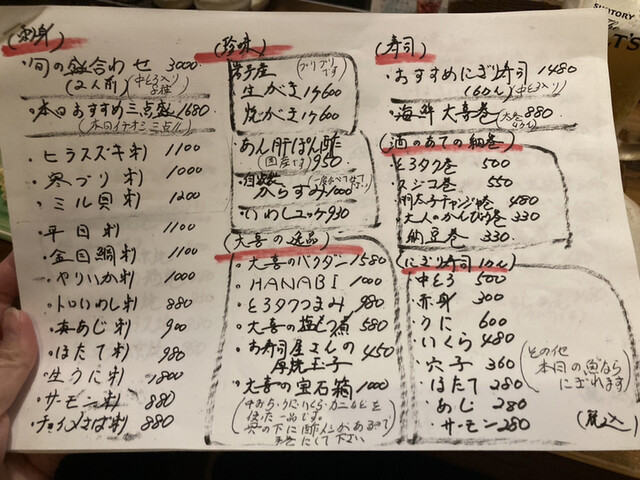 (刺身)
・旬の盛合わせ 3000
(2人前)(中とろ入り 8種)
・本日おすすめ三点盛 1680
(本日イチオシ三点!!)
・ヒラスズキ刺 1100
・寒ブリ刺 1000
・ミル貝刺 1200
・平目刺 1100
・金目鯛刺 1100
・やりいか刺 1000
・トロいわし刺 880
・本あじ刺 900
・ほたて刺 980
・生うに刺 1800
・サーモン刺 880
・チョイメさば刺 880
(珍味)
岩手産 (プリプリです)
生がき 1ケ600
焼がき 1ケ600
・あん肝ぽん酢
(国産です) 950
・自家製 からすみ 1000
・いわしユッケ 930
(大喜の逸品)
・大喜のバクダン 1580
・HANABI 1000
・とろタクつまみ 980
・大喜の塩もつ煮 580
・お寿司屋さんの 厚焼玉子 450
・大喜の宝石箱 1000
(中おち・うに・いくら・カニなどを
使った一品です。
具の下に酢メシがあるので
手巻にして下さい)
(寿司)
・おすすめにぎり寿司 1480
(6カン)(中とろ入り)
・海鮮大喜巻 880
(酒のあての細巻)
・とろタク巻 500
・スジコ巻 550
・明太子チャンジャ巻 480
・大人のかんぴょう巻 330
・納豆巻 330
(にぎり寿司 1カン)
・中とろ 500
・赤身 300
・うに 600
・いくら 480
・穴子 360
・ほたて 280
・あじ 280
・サーモン 280
(その他
本日の魚なら
にぎれます)
(税込)
SUNTORY
The